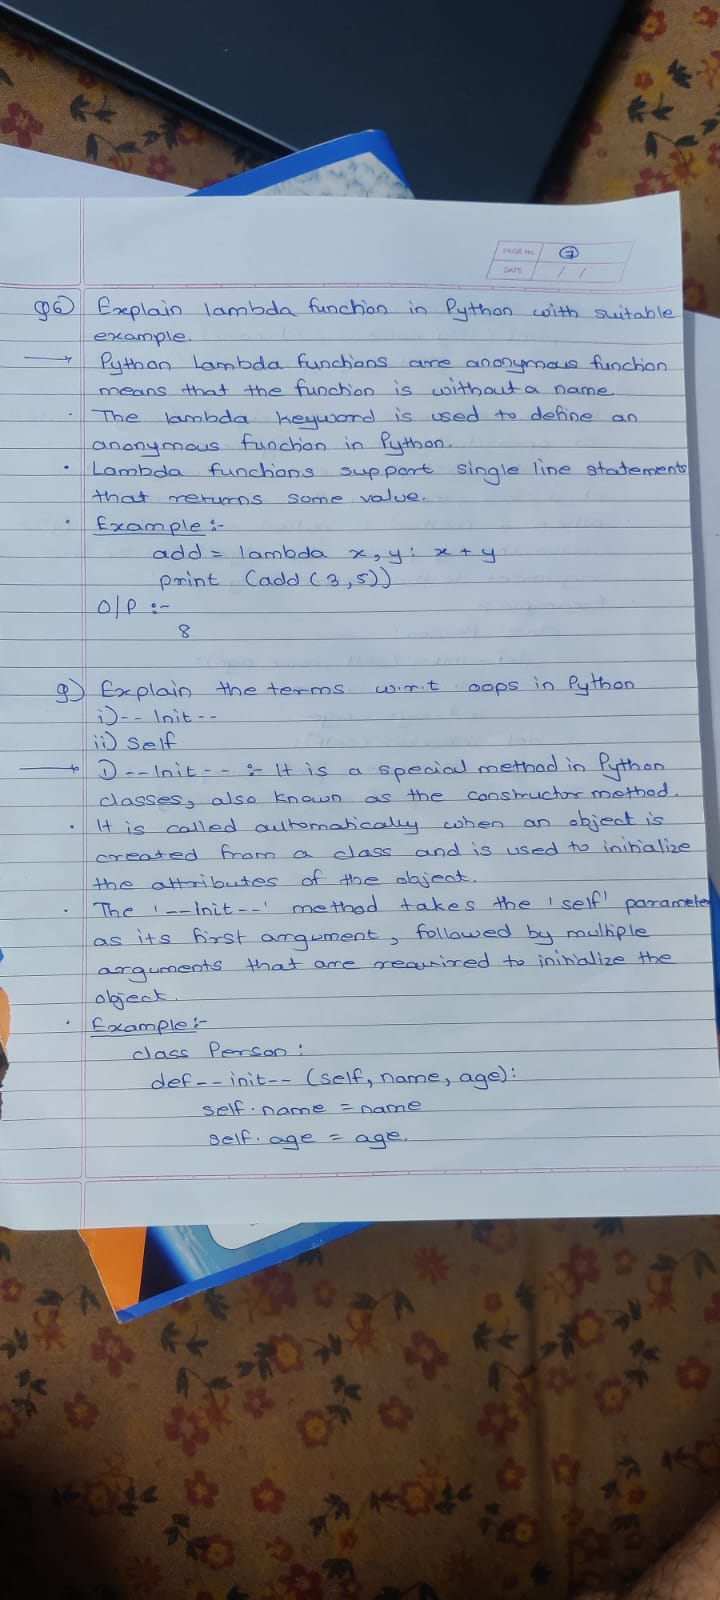 PAGE No. 7
DATE / /
Q6) Explain lambda function in Python with suitable
example.
→ Python Lambda functions are anonymous function
means that the function is without a name.
· The lambda keyword is used to define an
anonymous function in Python.
· Lambda functions support single line statements
that returns some value.
· Example :-
add = lambda x, y : x + y
print (add (3,5))
O/P :-
8
g) Explain the terms w.r.t oops in Python
i) -- Init --
ii) Self
→ I) --Init-- :- It is a special method in Python
classes, also known as the constructor method.
· It is called automatically when an object is
created from a class and is used to initialize
the attributes of the object.
· The '--Init--' method takes the 'self' parameter
as its first argument, followed by multiple
arguments that are required to initialize the
object.
· Example :-
class Person :
def -- init -- (self, name, age) :
self.name = name
self.age = age.